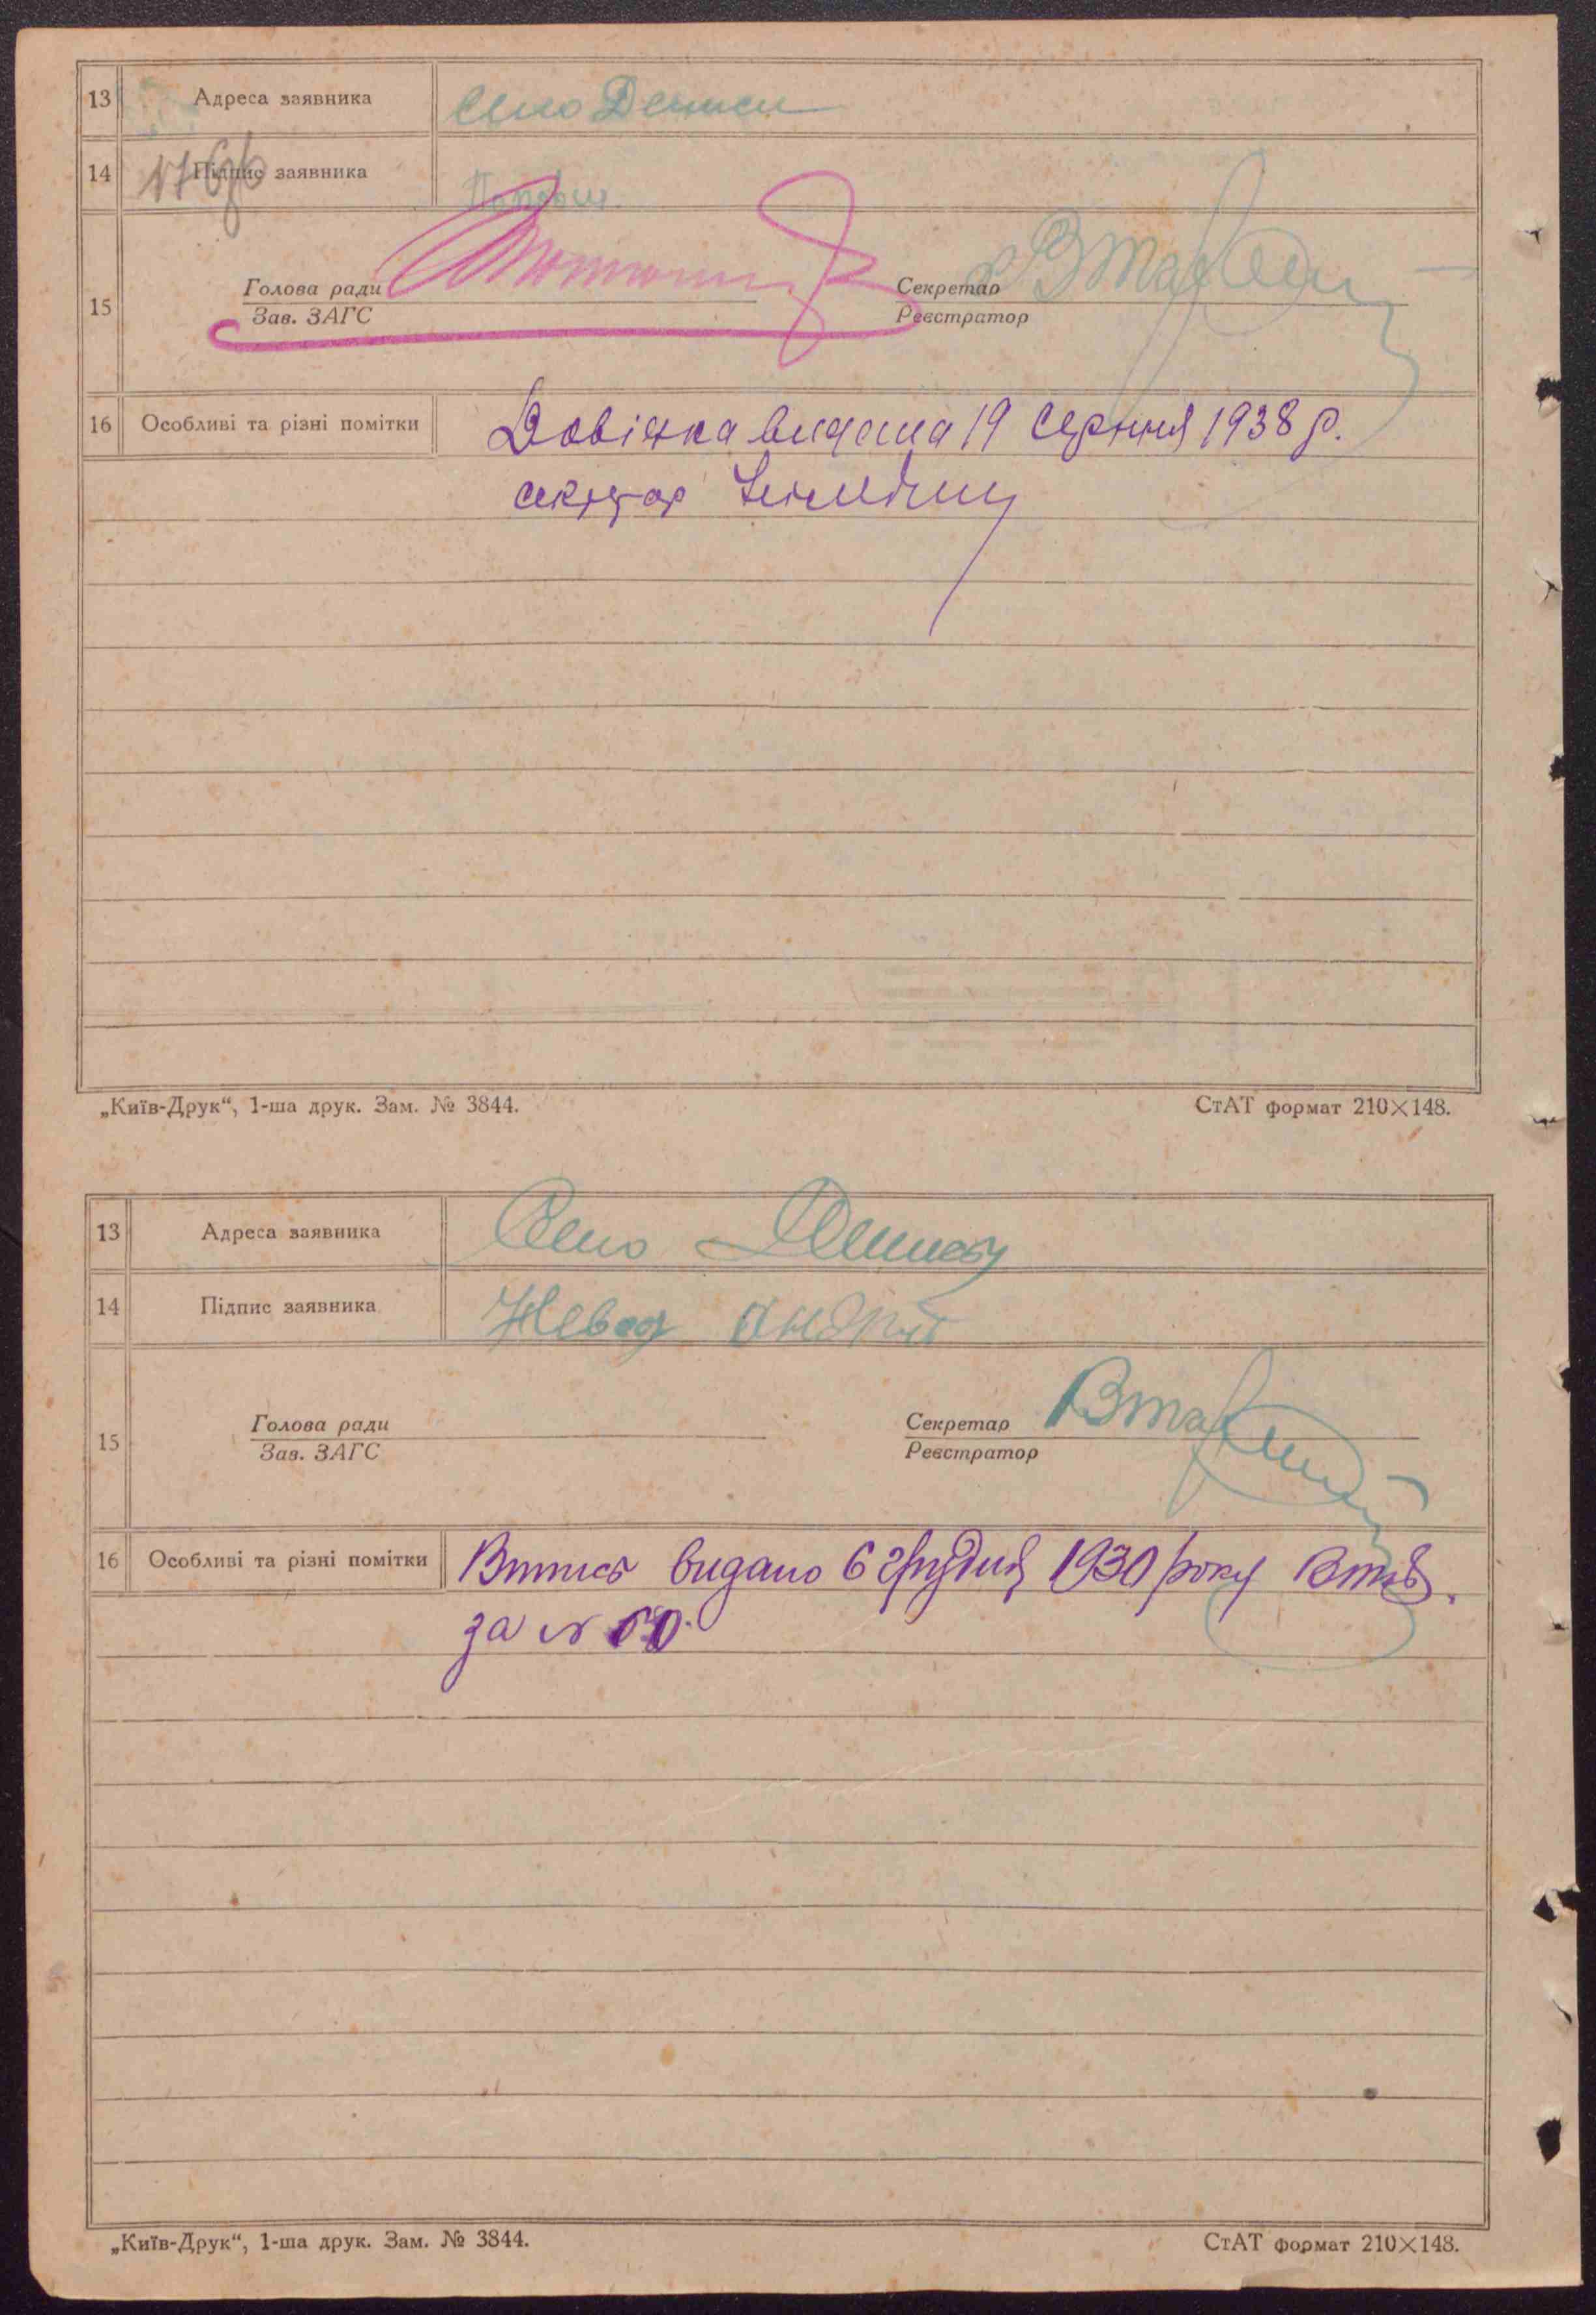 13 Адреса заявника Село Дениси
14 Підпис заявника
Голова ради Секретар
15
Зав. ЗАГС Реєстратор
16 Особливі та різні помітки Довідка видана 19 серпня 1938 р.
секретар
„Київ-Друк“, 1-ша друк. Зам. № 3844. СтАТ формат 210×148.
13 Адреса заявника Село Дениси
14 Підпис заявника Андрій
Голова ради Секретар
15
Зав. ЗАГС Реєстратор
16 Особливі та різні помітки Випись видано 6 грудня 1930 року
за №
„Київ-Друк“, 1-ша друк. Зам. № 3844. СтАТ формат 210×148.